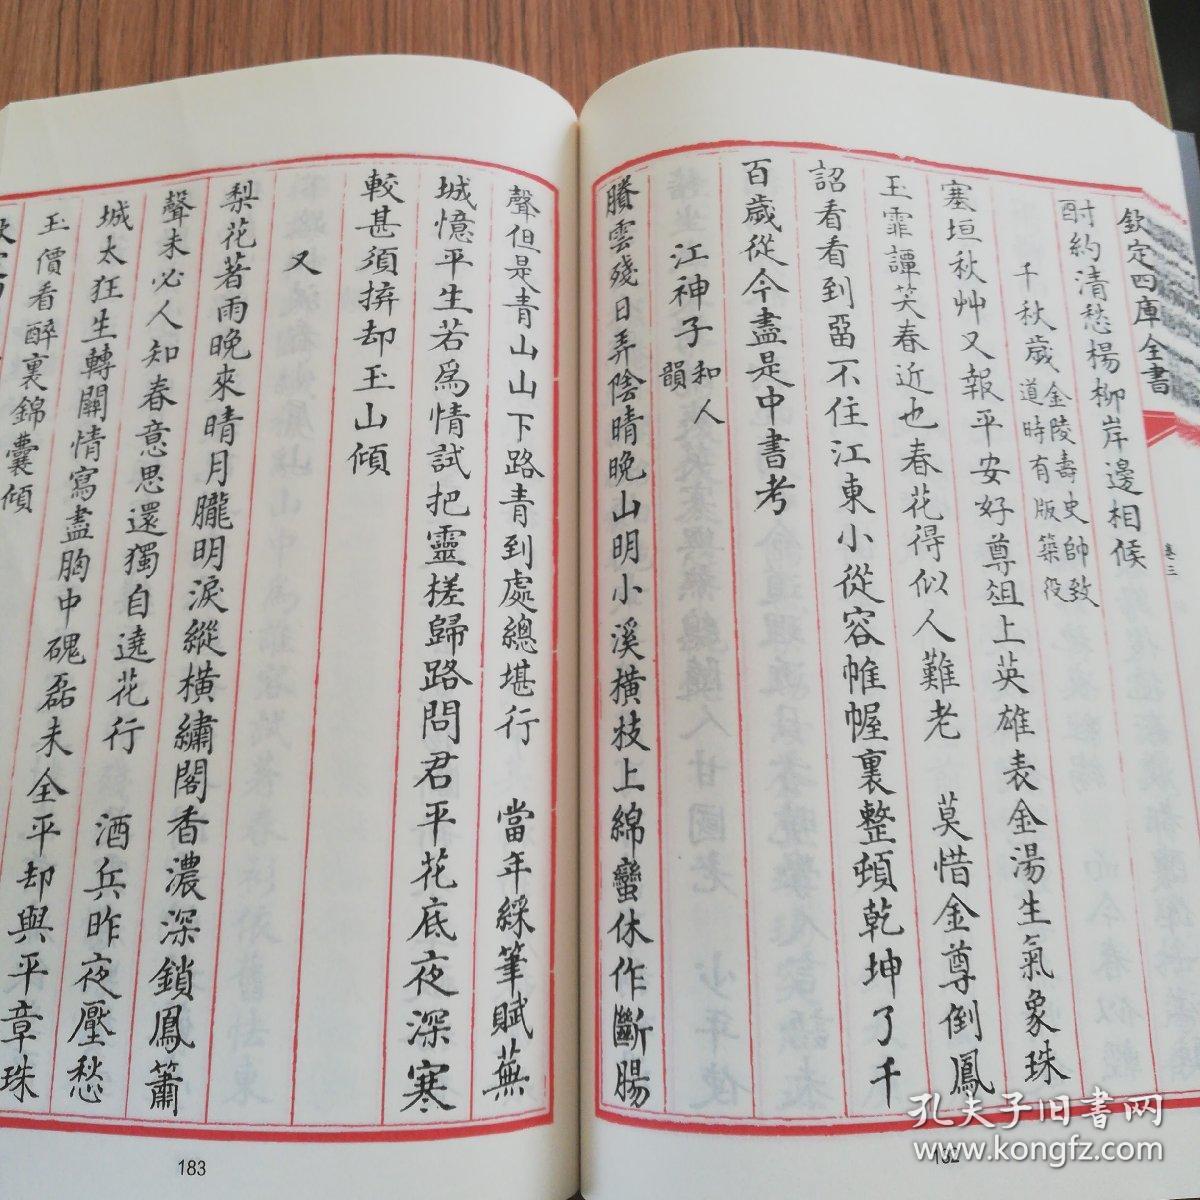 欽定四庫全書
卷三
酎約清愁楊柳岸邊相候
千秋歲金陵壽史帥致
道時有版築役
塞垣秋艸又報平安好尊俎上英雄表金湯生氣象珠
玉霏譚笑春近也春花得似人難老　莫惜金尊倒鳳
詔看看到畱不住江東小從容帷幄裏整頓乾坤了千
百歲從今盡是中書考
江神子和人
韻
賸雲殘日弄陰晴晚山明小溪橫枝上綿蠻休作斷腸
聲但是青山山下路青到處總堪行　當年綵筆賦蕪
城憶平生若爲情試把靈槎歸路問君平花底夜深寒
較甚須拚却玉山傾
又
梨花著雨晚來晴月朧明淚縱橫繡閣香濃深鎖鳳簫
聲未必人知春意思還獨自遶花行　酒兵昨夜壓愁
城太狂生轉關情寫盡胸中磈磊未全平却與平章珠
玉價看醉裏錦囊傾
183
孔夫子旧书网
www.kongfz.com